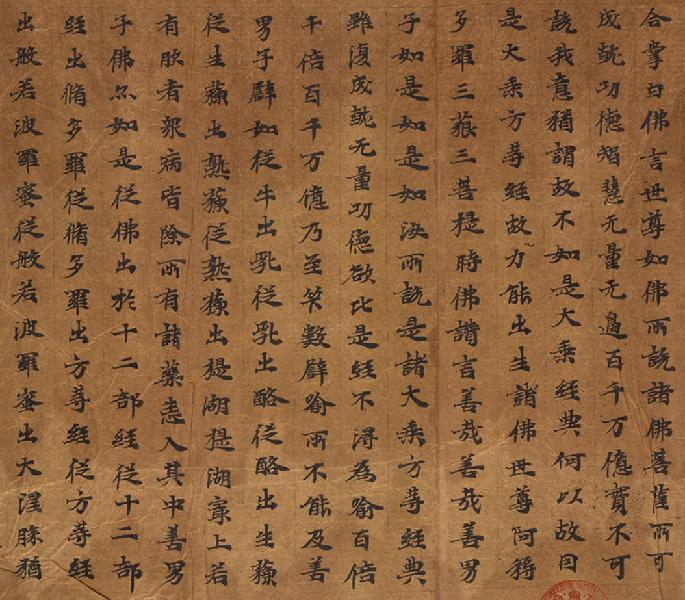 合掌白佛言世尊如佛所說諸佛菩薩所可
成就功德智慧无量无邊百千万億實不可
說我意猶謂故不如是大乗經典何以故因
是大乗方等經故力能出生諸佛世尊阿耨
多羅三藐三菩提時佛讃言善哉善哉善男
子如是如是如汝所說是諸大乗方等經典
雖復成就无量功德欲比是經不得為喻百倍
千倍百千万億乃至筭數辟喻所不能及善
男子辟如從牛出乳從乳出酪從酪出生蘇
從生蘇出熟蘇從熟蘇出提湖提湖冣上若
有服者衆病皆除所有諸藥悉入其中善男
子佛亦如是從佛出於十二部經從十二部
經出脩多羅從脩多羅出方等經從方等經
出般若波羅蜜從般若波羅蜜出大涅槃猶